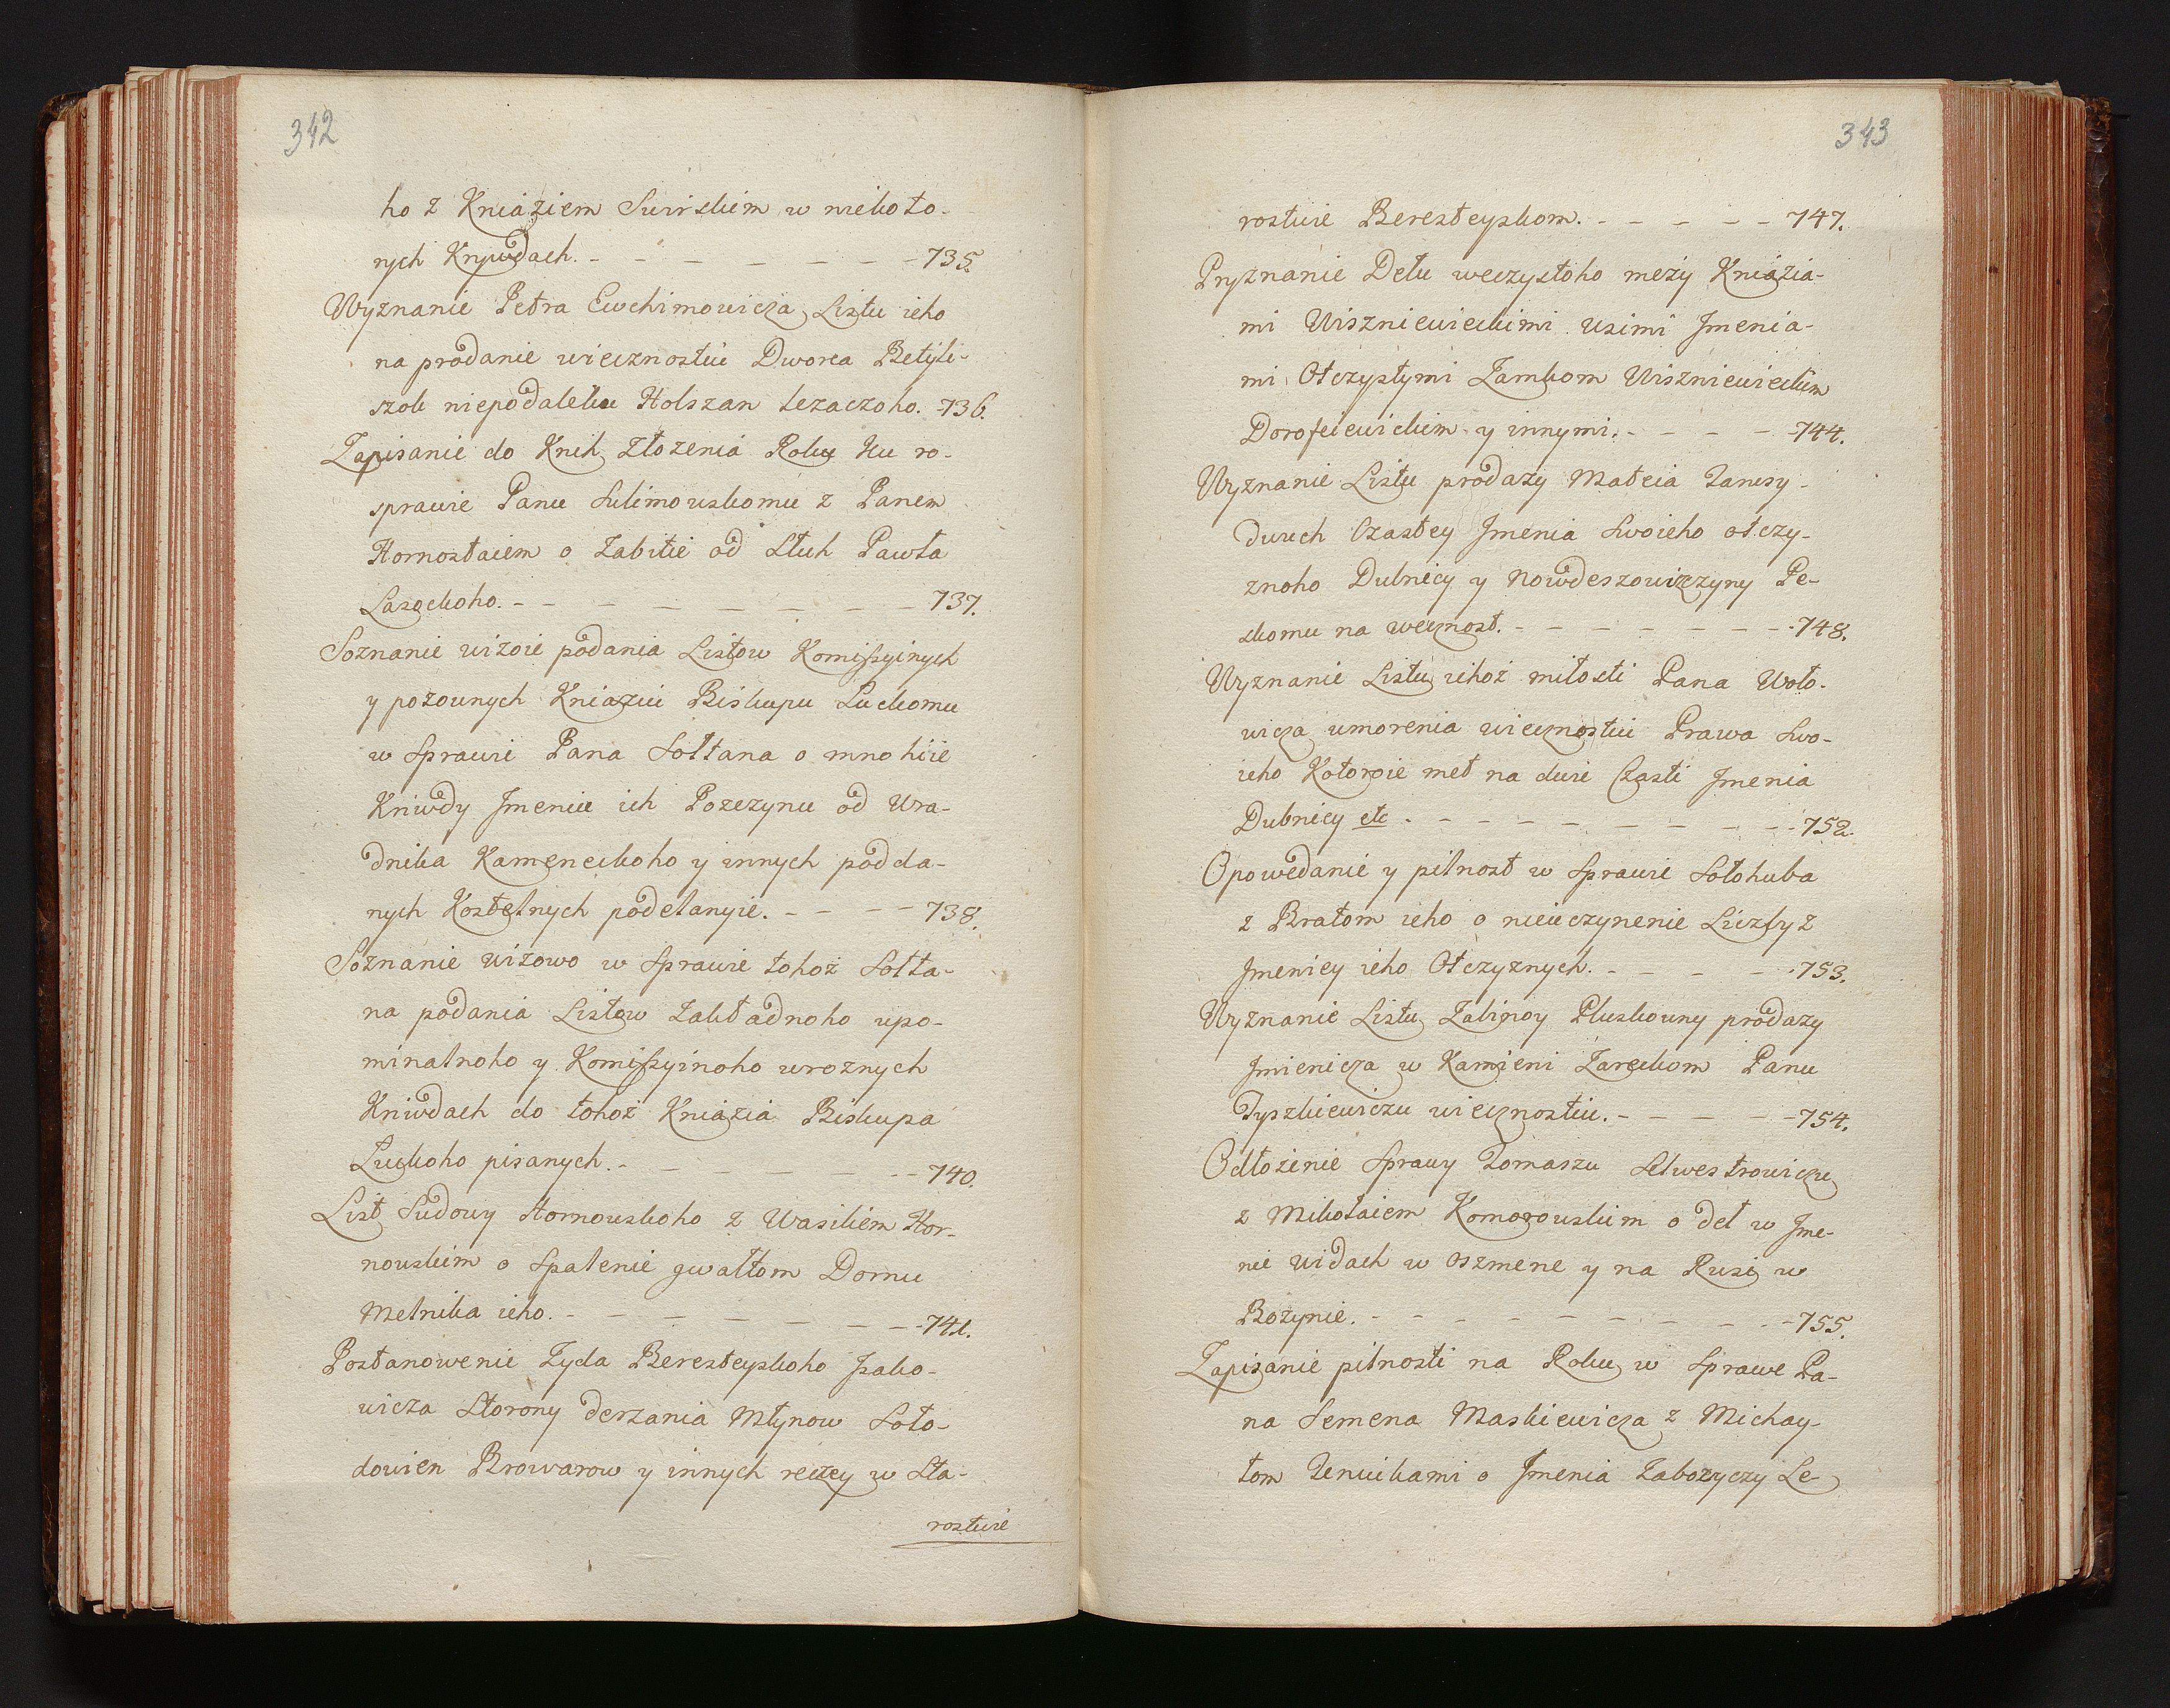 342
ho z Kniaziem Swirskiem w niekoto-
rych Krywdach. - - - - - - - 735.
Wyznanie Petra Ewchimowicza Listu ieho
na prodanie wiecznostiu Dworca
szok niepodaleku Holszan lezaczoho. - 736.
Zapisanie do Knih Złozenia Roku Ku ro-
sprawie Panu Sulimowskomu z Panem
Hornostaiem o Zabitie od Słuh Pawła
Lasockoho. - - - - - - - - 737.
Soznanie wizoie podania Listow Komissyinych
y pozownych Kniaziu Biskupu Luckomu
w Sprawie Pana Sołtana o mnohiie
Kriwdy Jmeniu ich Pozezynu od Wra-
dnika Kameneckoho y innych podda-
nych Kostelnych podelanyie. - - - - 738.
Soznanie wizowo w Sprawie tohoż Sołta-
na podania Listow Zakładnoho upo-
minalnoho y Komissyinoho w roznych
Kriwdach do tohoż Kniazia Biskupa
Luckoho pisanych. - - - - - - 740.
List Sudowy Hornowskoho z Wasiliem Hor-
nowskim o Spalenie gwałtom Domu
Melnika ieho. - - - - - - - 741.
Postanowenie Zyda Beresteyskoho Jsako-
wicza Storony derzania Młynow Soło-
dowien Browarow y innych reczey w Sta-
rostwie
343
rostwie Beresteyskom. - - - - - 747.
Pryznanie Dełu weczystoho meży Kniazia-
mi Wiszniewieckimi wsimi Jmenia-
mi Otczystymi Zamkom Wiszniewieckim
Dorofeiewickim y innymi. - - - - 744.
Wyznanie Listu prodaży Mateia
dwuch Czastey Jmenia Swoieho otczy-
znoho Dubnicy y Nowdeszowizczyny Pe-
skomu na wecznost. - - - - - - - 748.
Wyznanie Listu iehoż miłosti Pana Woło-
wicza umorenia wiecznostiu Prawa Swo-
ieho Kotoroie meł na dwie Czasti Jmenia
Dubnicy etc. - - - - - - - - 752.
Opowedanie y pilnost w Sprawie Sołohuba
z Bratom ieho o nieuczynenie Liczby z
Jmenicy ieho Otczyznych. - - - - - 753.
Wyznanie Listu Zalinoy Pluskowny prodazy
Jmienicza w Kamieni Zareckom Panu
Tyszkiewiczu wiecznostiu. - - - - - 754.
Odłożenie Sprawy Tomaszu Selwestrowiczu
z Mikołaiem Komorowskim o deł w Jme-
nie Widach w Oszmene y na Rusi w
Bożynie. - - - - - - - - - 755.
Zapisanie pilnosti na Roku w Sprawe Pa-
na Semena Maskiewicza z Michay-
łom Zenwikami o Jmenia Zabożyczy Le-